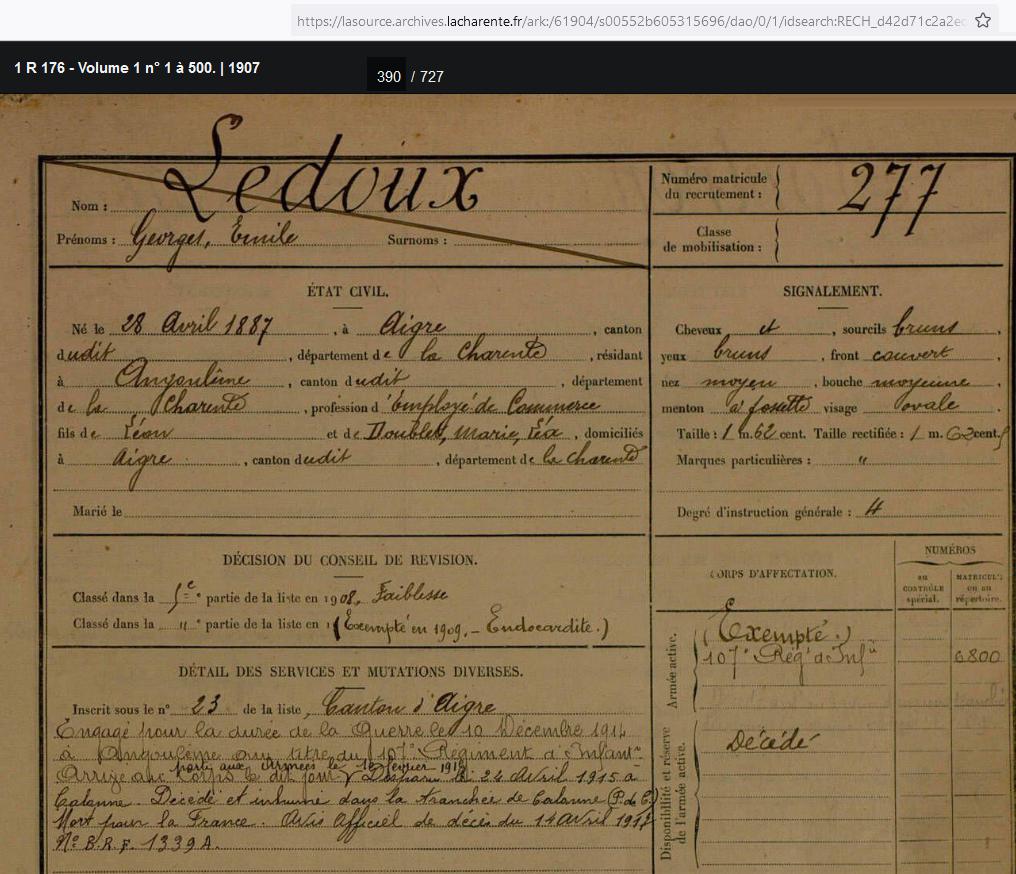 https://lasource.archives.lacharente.fr/ark:/61904/s00552b605315696/dao/0/1/idsearch:RECH_d42d71c2a2ec
1 R 176 - Volume 1 n° 1 à 500. | 1907
390 / 727
Nom : Ledoux
Prénoms : Georges, Emile Surnoms :
Numéro matricule du recrutement : 277
Classe de mobilisation :
ÉTAT CIVIL.
Né le 28 Avril 1887, à Aigre, canton
dudit, département de la Charente, résidant
à Angoulême, canton dudit, département
de la Charente, profession d'Employé de Commerce
fils de Léon et de Doublet, Marie, Léa, domiciliés
à Aigre, canton dudit, département de la Charente
Marié le
SIGNALEMENT.
Cheveux et, sourcils bruns,
yeux bruns, front couvert,
nez moyen, bouche moyenne,
menton à fossette visage ovale
Taille : 1 m. 62 cent. Taille rectifiée : 1 m. 62 cent.
Marques particulières : "
Degré d'instruction générale :
DÉCISION DU CONSEIL DE REVISION.
Classé dans la 5e partie de la liste en 1908, Faiblesse
Classé dans la " partie de la liste en 1 (Exempté en 1909. - Endocardite.)
DÉTAIL DES SERVICES ET MUTATIONS DIVERSES.
Inscrit sous le n° 23 de la liste, Canton d'Aigre
Engagé pour la durée de la Guerre le 10 Décembre 1914
à Angoulême au titre du 107e Régiment d'Infant
parti aux Armées le février 1915
Arrivé au Corps le dit jour Disparu le 24 Avril 1915 à
Calonne. Décédé et inhumé dans la tranchée de Calonne (P. de C.)
Mort pour la France. Avis Officiel de décès du 14 Avril 1917
N° B.R.F. 1339 A.
CORPS D'AFFECTATION.
NUMÉROS
au CONTRÔLE spécial.
MATRICULE ou au répertoire.
Armée active.
(Exempté.)
107e Rég d'Infie 6800
Disponibilité et réserve de l'armée active.
Décédé